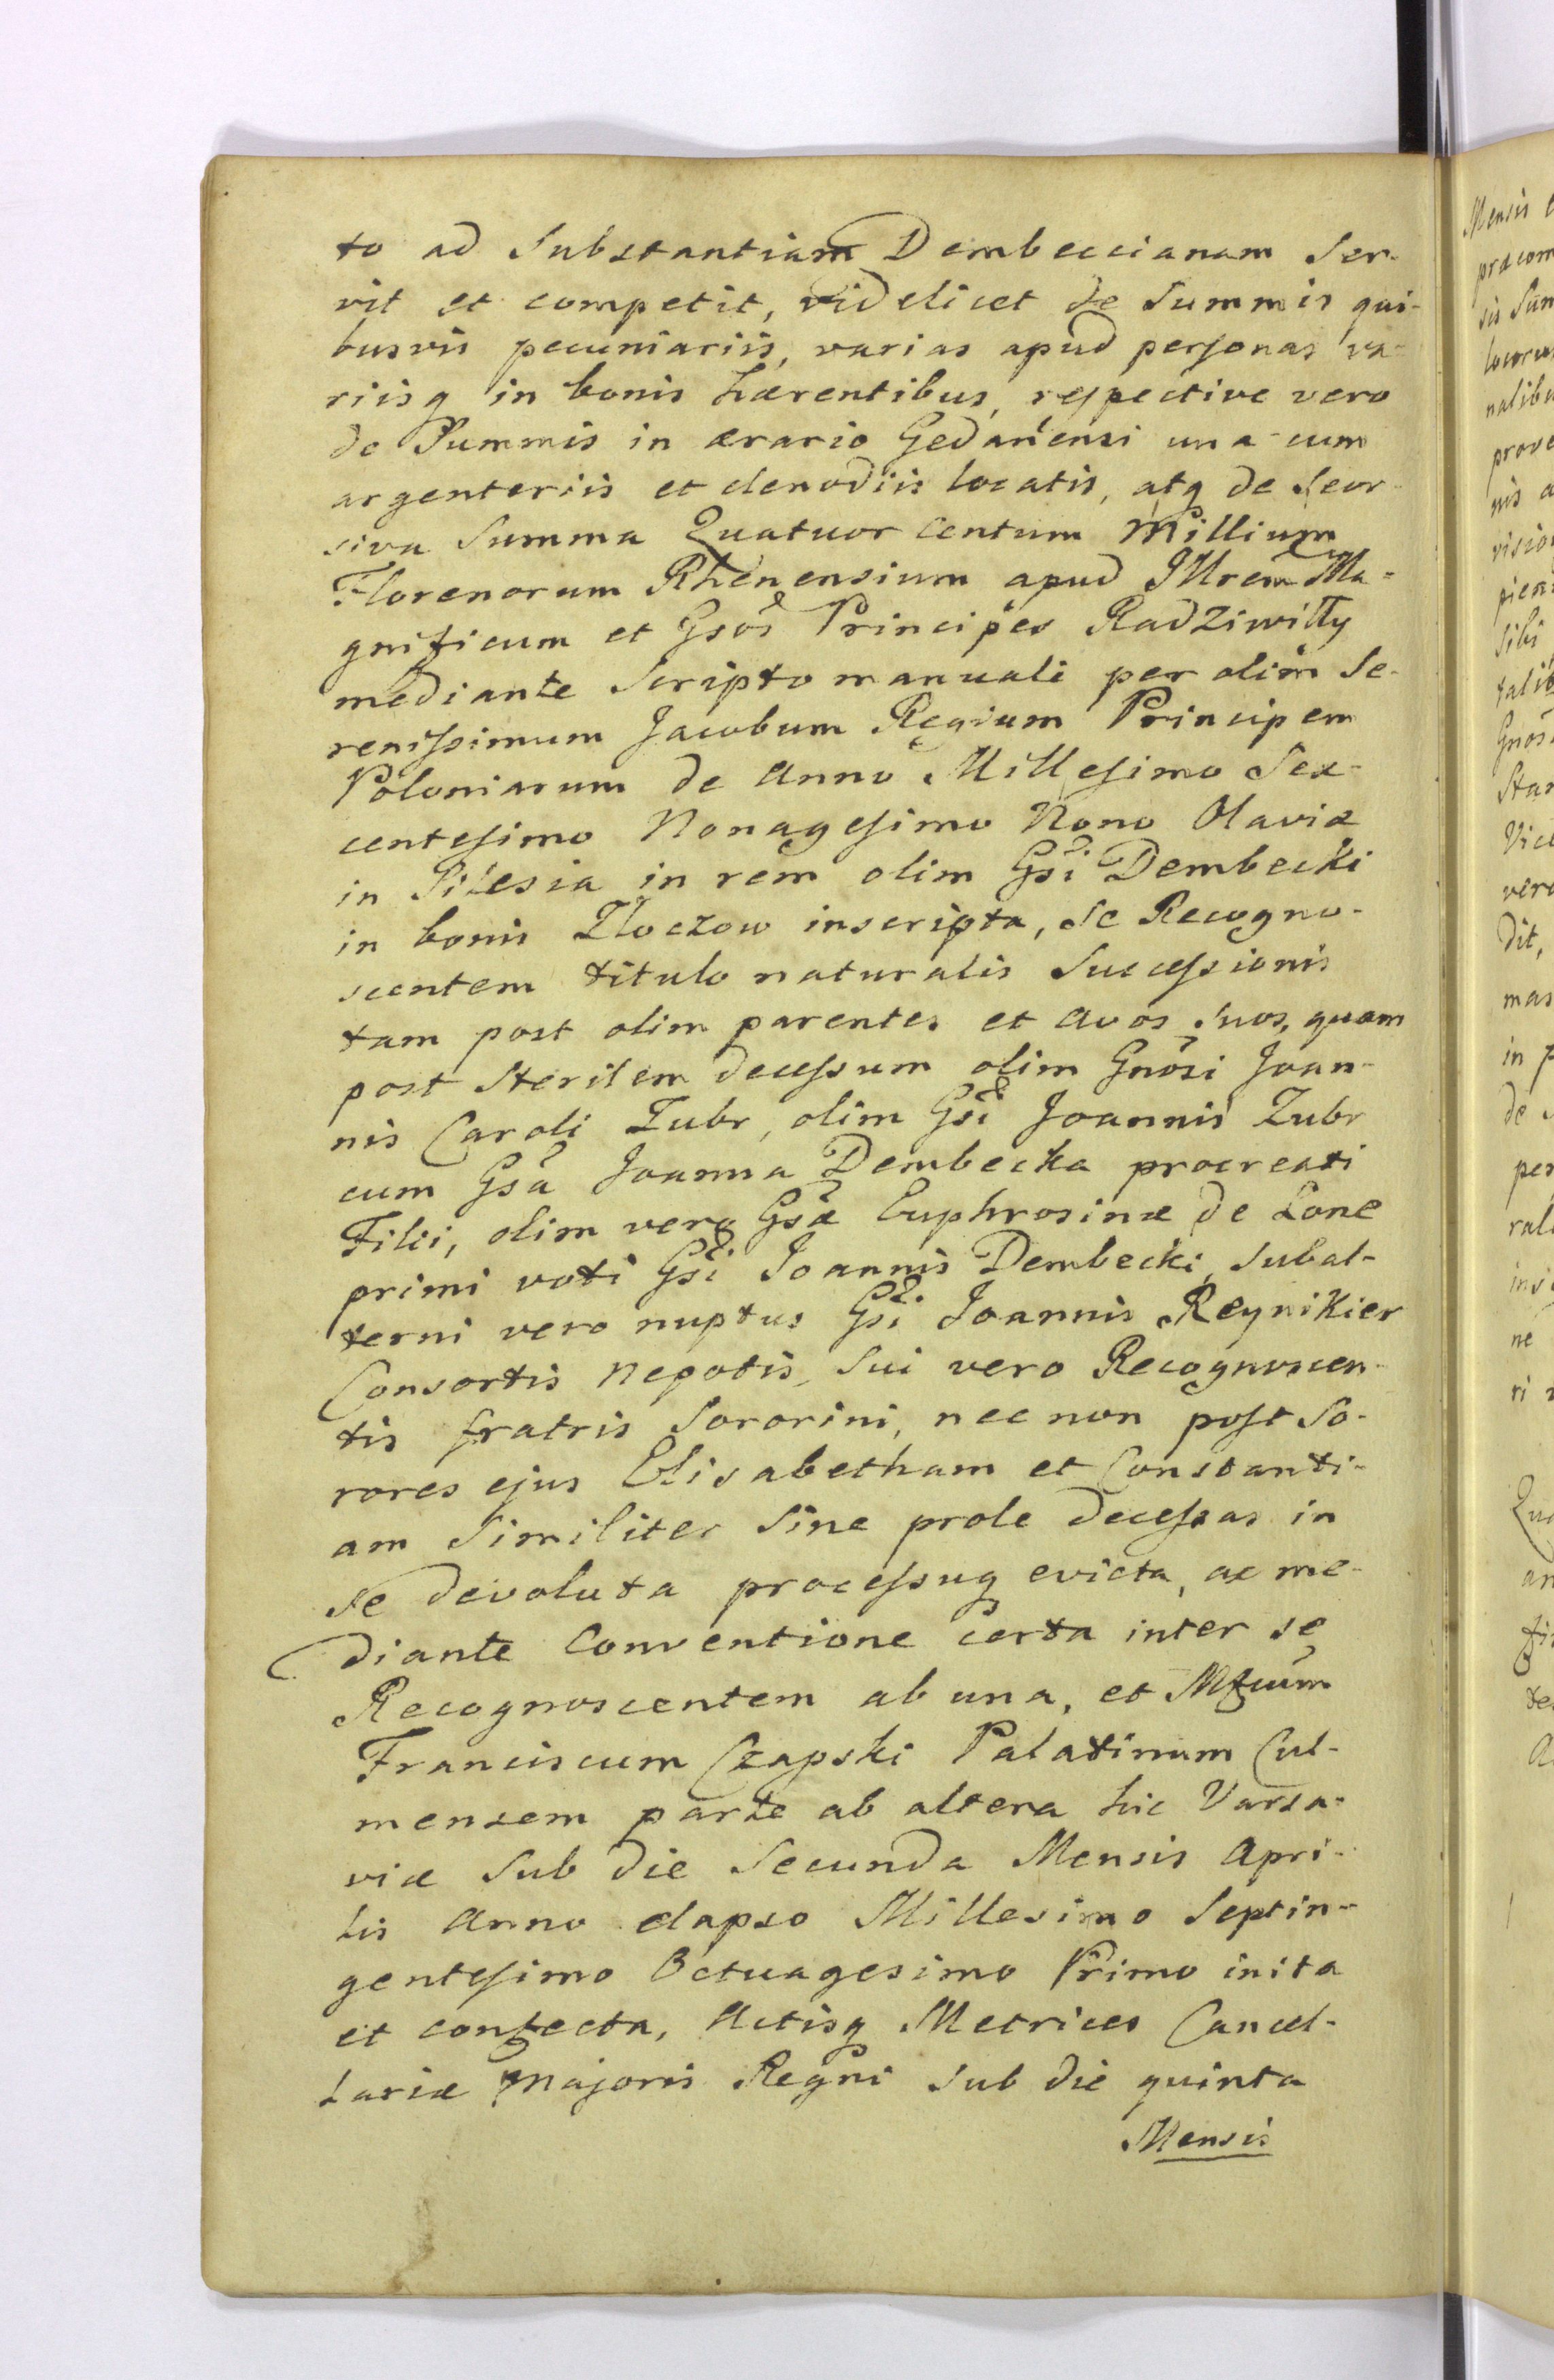 to ad Substantiam Dembeccianam Ser-
vit et competit, videlicet de Summis qui-
busvis pecuniariis, varias apud personas va-
riisq in bonis hærentibus, respective vero
de Summis in ærario Gedanensi una cum
argenteriis et clenodiis locatis, atq de Seor-
siva Summa Quatuor Centum Millium
Florenorum Rhenensium apud Illrem Ma-
gnificum et Gsos Principes Radziwiłły
mediante Scripto manuali per olim Se-
renissimum Jacobum Regium Principem
Poloniarum de Anno Millesimo Sex-
centesimo Nonagesimo Nono Olaviæ
in Silesia in rem olim Gsi Dembecki
in bonis Złoczow inscripta, se Recogno-
scentem titulo naturalis Successionis
tam post olim parentes et avos suos, quam
post Sterilem decessum olim Gnosi Joan-
nis Caroli Zubr, olim Gsi Joannis Zubr
cum Gsa Joanna Dembecka procreati
Filii, olim vero Gsæ Euphrosinæ de Lone
primi voti Gsi Joannis Dembecki, Subal-
terni vero nuptus Gsi Joannis Reynikier
Consortis Nepotis, Sui vero Recognoscen-
tis fratris Sororini, nec non post So-
rores ejus Elisabetham et Constanti-
am Similiter Sine prole decessas in
se devoluta processuq evicta, ac me-
diante Conventione certa inter se
Recognoscentem ab una, et Mfcum
Franciscum Czapski Palatinum Cul-
mensem parte ab altera hic Varsa-
viæ Sub die Secunda Mensis Apri-
lis Anno elapso Millesimo Septin-
gentesimo Octuagesimo Primo inita
et confecta, Actisq Metrices Cancel-
lariæ Majoris Regni Sub die quinta
Mensis
Mensis